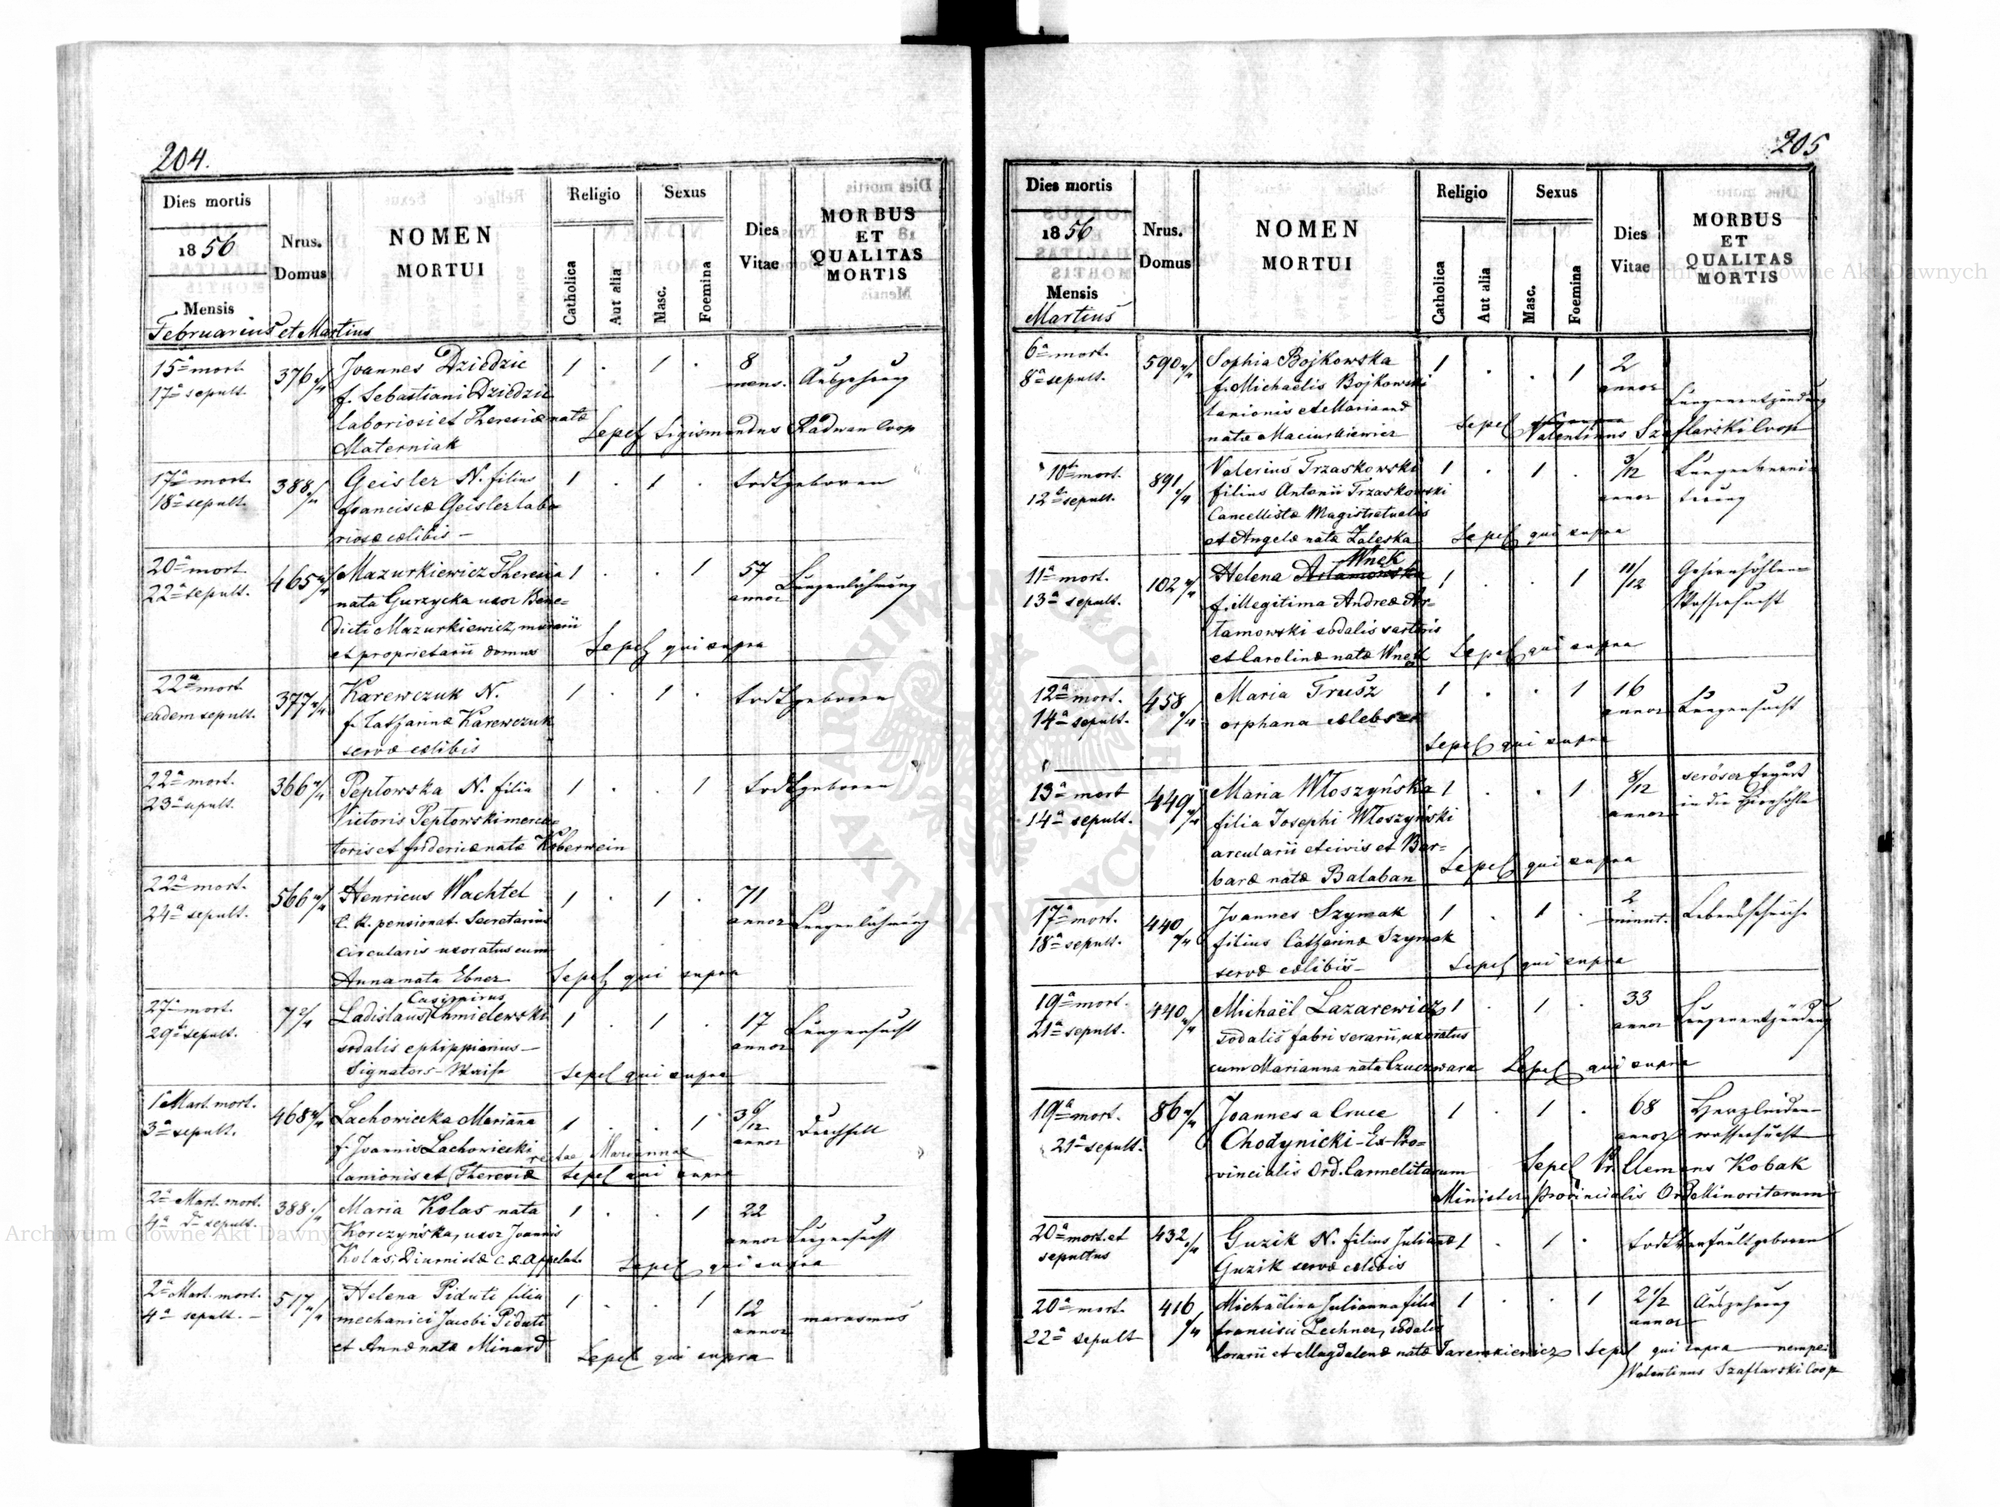 204.
Dies mortis
1856
Mensis
Februarius et Martius
Nrus.
Domus
NOMEN
MORTUI
Religio
Catholica
Aut alia
Sexus
Masc.
Foemina
Dies
Vitae
MORBUS
ET
QUALITAS
MORTIS
15a mort.
17a sepult.
376 4/4
Joannes Dziedzic
f. Sebastiani Dziedzic
laboriosi et Theresiæ natæ
Materniak
1 . 1 .
8
mens.
Auszehrung
Sepel Sigismundus Radwan Coop
17a mort.
18a sepult.
388
Geisler N. filius
Franciscæ Geisler labo-
riosæ cælibis –
1 . 1 .
todtgeboren
20a mort.
22a sepult.
465
Mazurkiewicz Theresia
nata Gurzycka uxor Bene-
dicti Mazurkiewicz, murarii
et proprietarii domus
1 . . 1
57
annor
Lungenlähmung
Sepel qui supra
22a mort.
eadem sepult.
377
Karewczuk N.
f. Catharinæ Karewczuk
servæ cælibis
1 . 1 .
todtgeboren
22a mort.
23a sepult.
366
Peptowska N. filia
Victoris Peptowski merca-
toris et Fridericæ natæ Koberwein
1 . . 1
todtgeboren
22a mort.
24a sepult.
566
Henricus Wachtel
C. k. pensionat. Secretarius
circularis uxoratus cum
Anna nata Ebner
1 . 1 .
71
annor
Lungenlähmung
Sepel qui supra
27a mort.
29a sepult.
7
Casimirus
Ladislaus Chmielewski
sodalis ephippiarius –
Signators-Waise
1 . 1 .
17
annor
Lungensucht
Sepel qui supra
1a Mart. mort.
3a sepult.
468
Lachowiecka Marianna
f. Joannis Lachowiecki
lanionis et Theresiæ
rectae Mariannae
1 . . 1
annor
Durchfall
Sepel qui supra
2a Mart. mort.
4a sepult.
388
Maria Kolas nata
Korczyńska, uxor Joannis
Kolas, Diurnistæ C. R. Appelat.
1 . . 1
22
annor
Lungensucht
Sepel qui supra
2a Mart. mort.
4a sepult. –
517
Helena Piduti filia
mechanici Jacobi Piduti
et Annæ natæ Minard
1 . . 1
12
annor
marasmus
Sepel qui supra
205
Dies mortis
1856
Mensis
Martius
Nrus.
Domus
NOMEN
MORTUI
Religio
Catholica
Aut alia
Sexus
Masc.
Foemina
Dies
Vitae
MORBUS
ET
QUALITAS
MORTIS
6a mort.
8a sepult.
590
Sophia Bojkowska
f. Michaelis Bojkowski
lanionis et Mariannæ
natæ Maciurkiewicz
1 . . 1
2
annor
Lungenentzündung
Sepel Valentinus Szaflarski Coop
10a mort.
12a sepult.
891
Valerius Trzaskowski
filius Antonii Trzaskowski
Cancellistæ Magistratualis
et Angelæ natæ Zaleska
1 . 1 .
3/12
annor
Sepel qui supra
11a mort.
13a sepult.
102
Wnek
Helena Artamowska
f. illegitima Andreæ Ar-
tamowski sodalis sartoris
et Carolinæ natæ Wnek
1 . . 1
11/12
Gehirnhöhlen-
Wassersucht
Sepel qui supra
12a mort.
14a sepult.
458
Maria Trusz
orphana cælebs
1 . . 1
16
annor
Lungensucht
Sepel qui supra
13a mort
14a sepult.
449
Maria Włoszyńska
filia Josephi Włoszyński
arcularii et civis et Bar-
baræ natæ Balaban
1 . . 1
8/12
annor
seröser Erguss
in die Hirnhöhle
Sepel qui supra
17a mort.
18a sepult.
440
Joannes Szymak
filius Catharinæ Szymak
servæ cælibis –
1 . 1 .
2
minut.
Lebensschwäche
Sepel qui supra
19a mort.
21a sepult.
440
Michaël Lazarewicz
sodalis fabri serarii, uxoratus
cum Marianna nata Czuczwara
1 . 1 .
33
annor
Lungenentzündung
Sepel qui supra
19a mort.
21a sepult.
86
Joannes a Cruce
Chodynicki – Ex-Pro-
vincialis Ord. Carmelitarum
1 . 1 .
68
annor
Herzleiden-
wassersucht
Sepel Clemens Kobak
Minister Provincialis Ord Minoritarum
20a mort. et
sepultus
432
Guzik N. filius Julianæ
Guzik servæ cælibis
1 . 1 .
todt geboren
20a mort.
22a sepult
416
Michaëlina Julianna filia
Francisci Lechner, sodalis
lorarii et Magdalenæ natæ Jaremkiewicz
1 . . 1
2 1/2
annor
Auszehrung
Sepel qui supra nempe:
Valentinus Szaflarski Coop
Archiwum Główne Akt Dawnych
Archiwum Główne Akt Dawnych
ARCHIWUM GŁÓWNE
AKT DAWNYCH